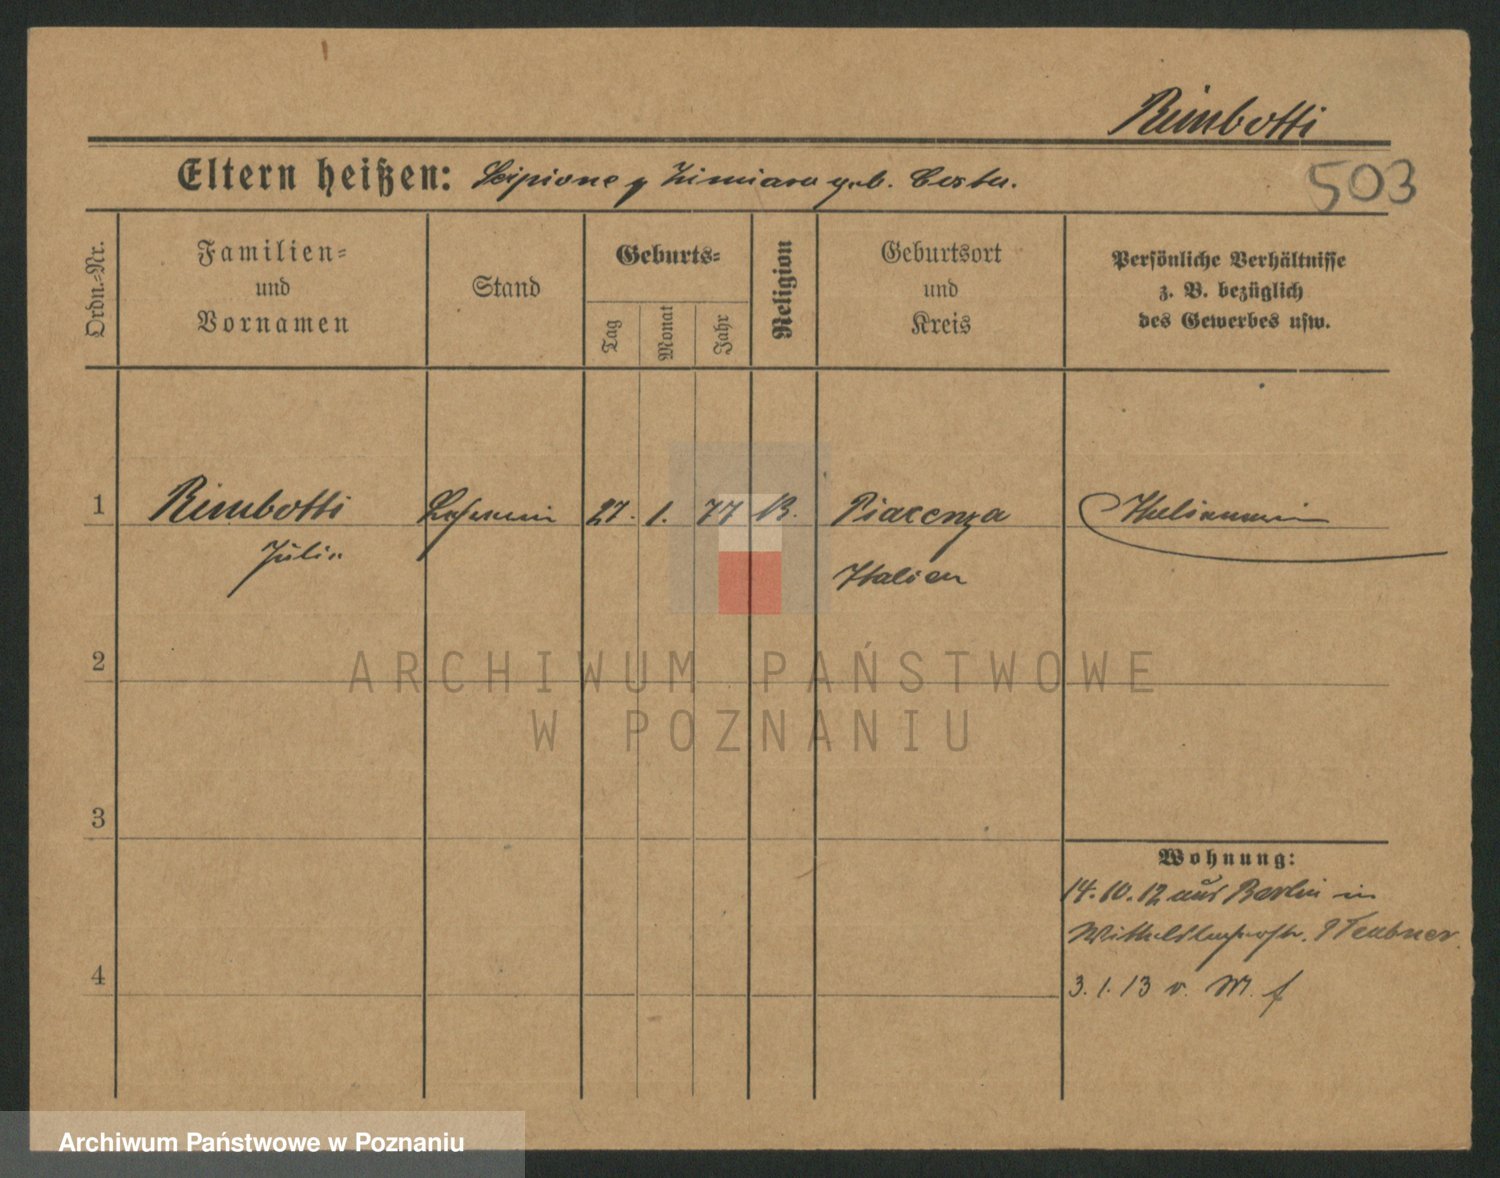 Rimbotti
Eltern heißen: Scipione geb. Costa.
503
Ordn.-Nr.
Familien-
und
Vornamen
Stand
Geburts-
Tag
Monat
Jahr
Religion
Geburtsort
und
Kreis
Persönliche Verhältnisse
z. B. bezüglich
des Gewerbes usw.
1 Rimbotti 27. 1. 77 Piacenza Italienerin
Julia Italien
2
ARCHIWUM PAŃSTWOWE
W POZNANIU
3
Wohnung:
14.10.12 aus Berlin in
Teubner
4
3.1.13 v.
Archiwum Państwowe w Poznaniu